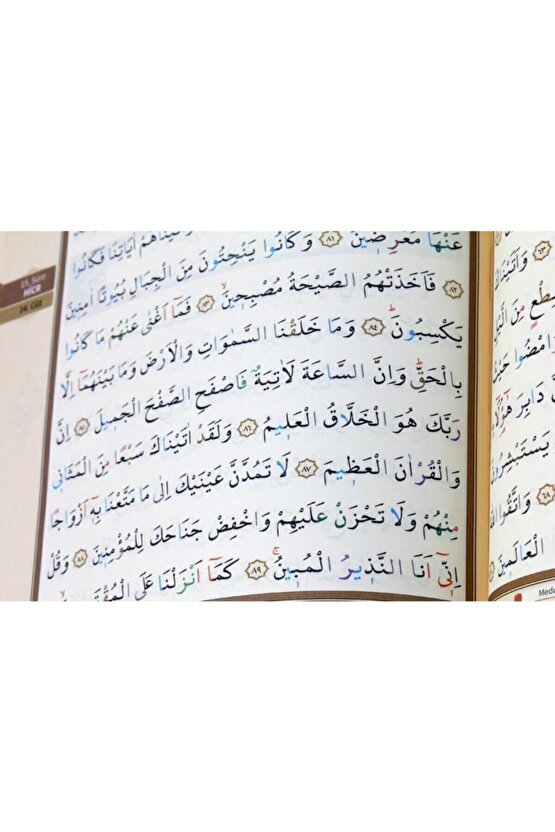 وَاٰتَيْنَاهُمْ اٰيَاتِنَا فَكَانُوا
عَنْهَا مُعْرِضٖينَ ﴿٨١﴾ وَكَانُوا يَنْحِتُونَ مِنَ الْجِبَالِ بُيُوتًا اٰمِنٖينَ
﴿٨٢﴾ فَاَخَذَتْهُمُ الصَّيْحَةُ مُصْبِحٖينَ ﴿٨٣﴾ فَمَٓا اَغْنٰى عَنْهُمْ مَا كَانُوا
يَكْسِبُونَ ﴿٨٤﴾ وَمَا خَلَقْنَا السَّمٰوَاتِ وَالْاَرْضَ وَمَا بَيْنَهُمَٓا اِلَّا
بِالْحَقِّ وَاِنَّ السَّاعَةَ لَاٰتِيَةٌ فَاصْفَحِ الصَّفْحَ الْجَمٖيلَ ﴿٨٥﴾ اِنَّ
رَبَّكَ هُوَ الْخَلَّاقُ الْعَلٖيمُ ﴿٨٦﴾ وَلَقَدْ اٰتَيْنَاكَ سَبْعًا مِنَ الْمَثَانٖى
وَالْقُرْاٰنَ الْعَظٖيمَ ﴿٨٧﴾ لَا تَمُدَّنَّ عَيْنَيْكَ اِلٰى مَا مَتَّعْنَا بِهٖٓ اَزْوَاجًا
مِنْهُمْ وَلَا تَحْزَنْ عَلَيْهِمْ وَاخْفِضْ جَنَاحَكَ لِلْمُؤْمِنٖينَ ﴿٨٨﴾ وَقُلْ
اِنّٖٓى اَنَا النَّذٖيرُ الْمُبٖينُ ﴿٨٩﴾ كَمَٓا اَنْزَلْنَا عَلَى
15. Sûre
HİCR
14. Cüz
﴿٦٣﴾ وَاَتَيْنَاكَ
مِنَ
وَامْضُوا حَيْثُ
دَابِرَ هٰٓؤُلَٓاءِ
يَسْتَبْشِرُونَ
﴿٦٨﴾ وَاتَّقُوا
الْعَالَمٖينَ